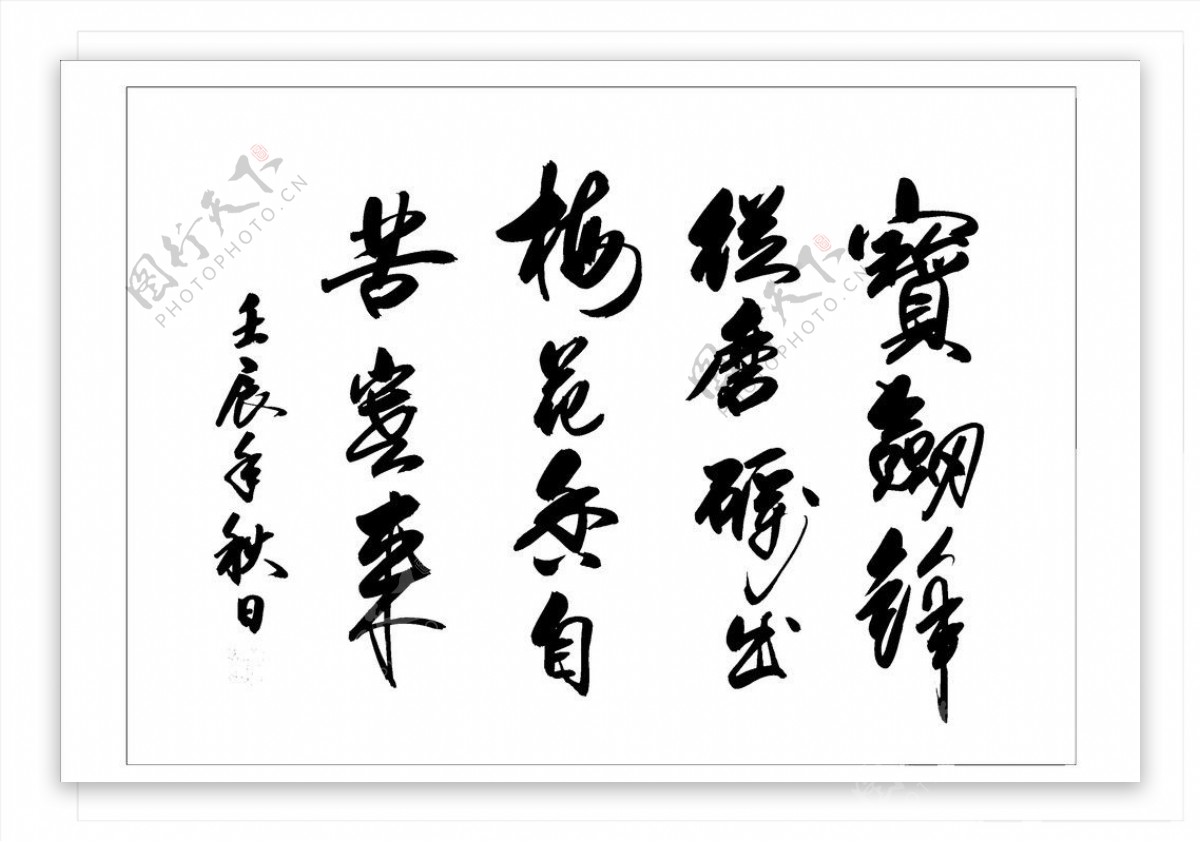 寶劒鋒
從磨礪出
梅花香自
苦寒來
壬辰年秋日
图行天下
PHOTOPHOTO.CN
图行天下
PHOTOPHOTO.CN